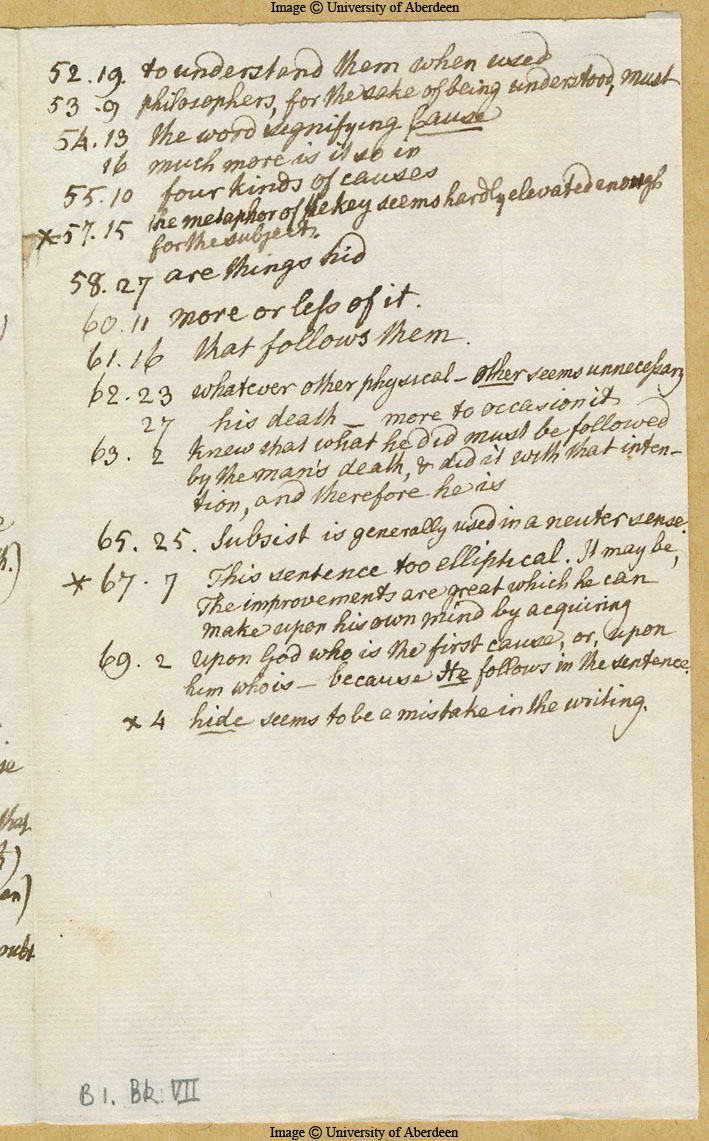 Image © University of Aberdeen
52.19. to understand them when used
53.9 philosophers, for the sake of being understood, must
54.13 the word signifying Cause
16 much more is it so in
55.10 four kinds of causes
*57.15 the metaphor of the key seems hardly elevated enough
for the subject.
58.27 are things hid
60.11 more or less of it.
61.16 that follows them.
62.23 whatever other physical – other seems unnecessary
27 his death – more to occasion it
63.2 knew that what he did must be followed
by the man's death, & did it with that inten-
tion, and therefore he is
65.25. Subsist is generally used in a neuter sense.
* 67.7 This sentence too elliptical. It may be,
The improvements are great which he can
make upon his own mind by acquiring
69.2 upon God who is the first cause, or, upon
him who is – because He follows in the sentence.
* 4 hide seems to be a mistake in the writing.
k.)
se
that
an)
oubt
B1. Bk. VII
Image © University of Aberdeen